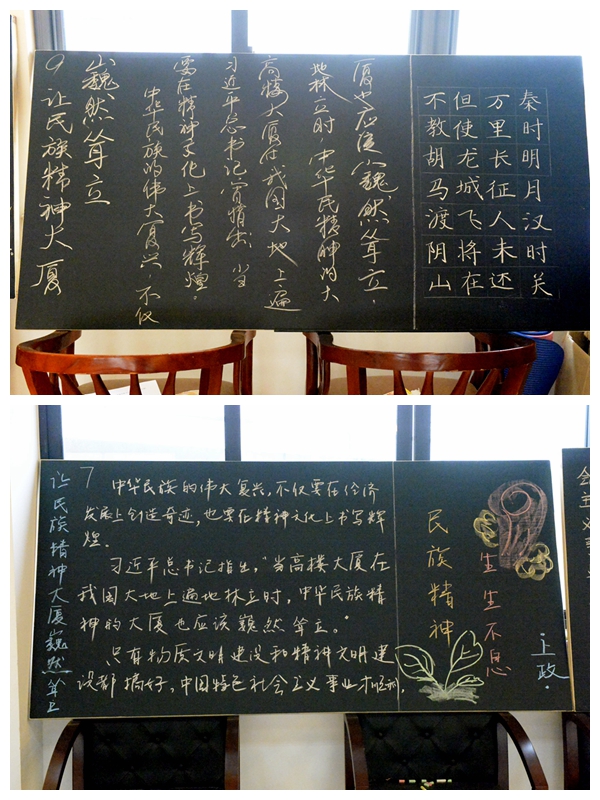 9 让民族精神大厦
巍然耸立
中华民族的伟大复兴,不仅
要在精神文化上书写辉煌。
习近平总书记曾指出,当
高楼大厦在我国大地上遍
地林立时,中华民精神的大
厦也应该巍然耸立。
秦时明月汉时关
万里长征人未还
但使龙城飞将在
不教胡马渡阴山
让民族精神大厦巍然耸立
7
中华民族的伟大复兴,不仅要在经济
发展上创造奇迹,也要在精神文化上书写辉
煌。
习近平总书记指出,“当高楼大厦在
我国大地上遍地林立时,中华民族精
神的大厦也应该巍然耸立。”
只有物质文明建设和精神文明建
设都搞好,中国特色社会主义事业才顺利.
民族精神
生生不息
·上政·
会主义